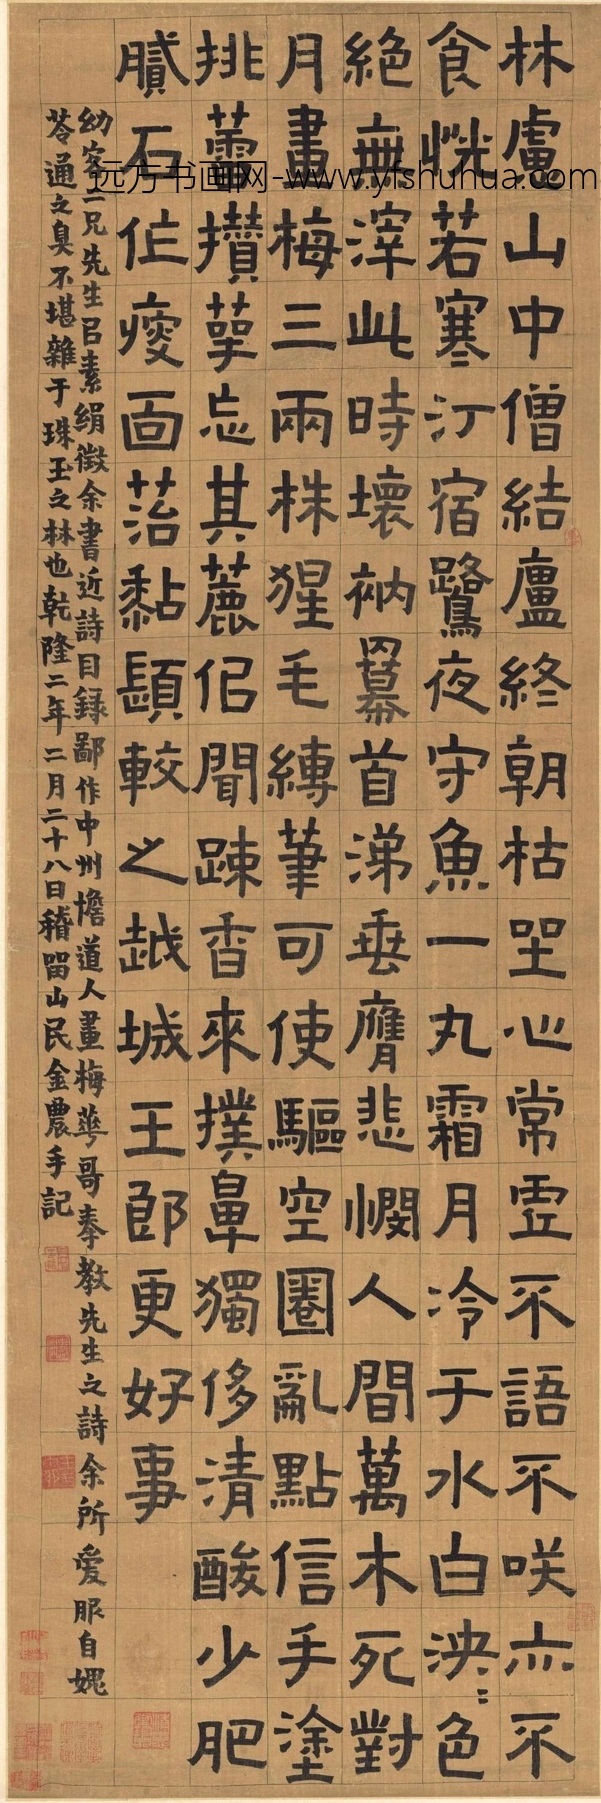 林慮山中僧結廬終朝枯坐心常虛不語不咲亦不
食恍若寒汀宿鷺夜守魚一丸霜月冷于水白泱〻色
絕無滓此時壞衲冪首涕垂膺悲憫人間萬木死對
月畫梅三兩株猩毛縛筆可使驅空圈亂點信手塗
挑攢萼忘其麤但聞踈香來撲鼻獨侈清酸少肥
膩石作瘦面苔黏較之越城王郎更好事
幼孚二兄先生㠯素絹徵余書近詩目錄鄙作中州憺道人畫梅華哥奉教先生之詩余所愛服自媿
苓通之臭不堪雜于珠玉之林也乾隆二年二月二十八日稽留山民金農手記
远方书画网-www.yfshuhua.com